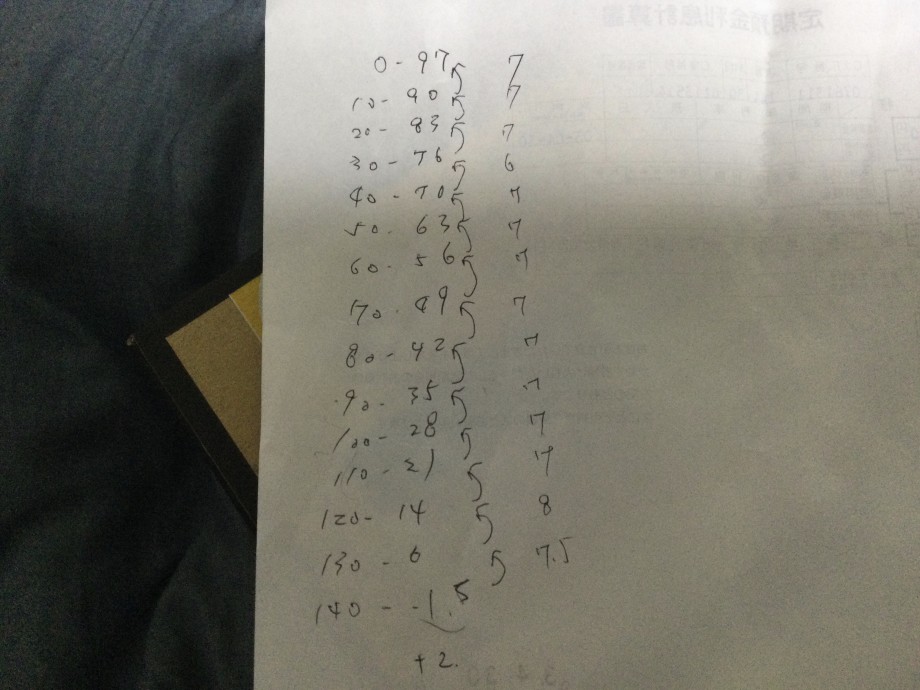 0 - 97 7
10 - 90 7
20 - 83 7
30 - 76 6
40 - 70 7
50 - 63 7
60 - 56 7
70 - 49 7
80 - 42 7
90 - 35 7
100 - 28 7
110 - 21 7
120 - 14 8
130 - 6 7.5
140 - -1.5
+2.
定期預金利息計算書